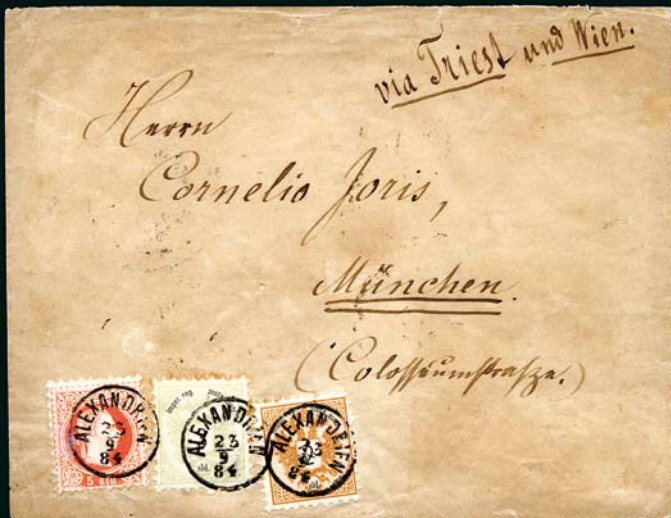 via Triest und Wien.
Herrn
Cornelio Joris,
München.
(Colosseumstrasze.)
ALEXANDRIEN
23
9
84
5 SLD
ALEXANDRIEN
23
9
84
sld.
ALEXANDRIEN
23
9
84